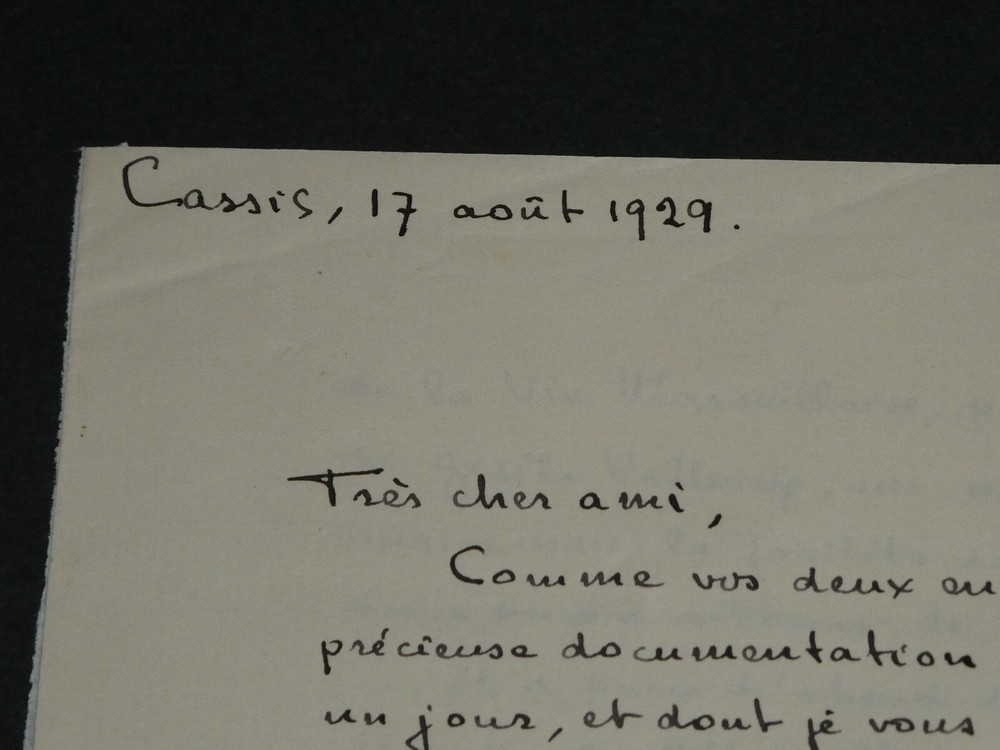 Cassis, 17 août 1929.
Très cher ami,
Comme vos deux en
précieuse documentation
un jour, et dont je vous